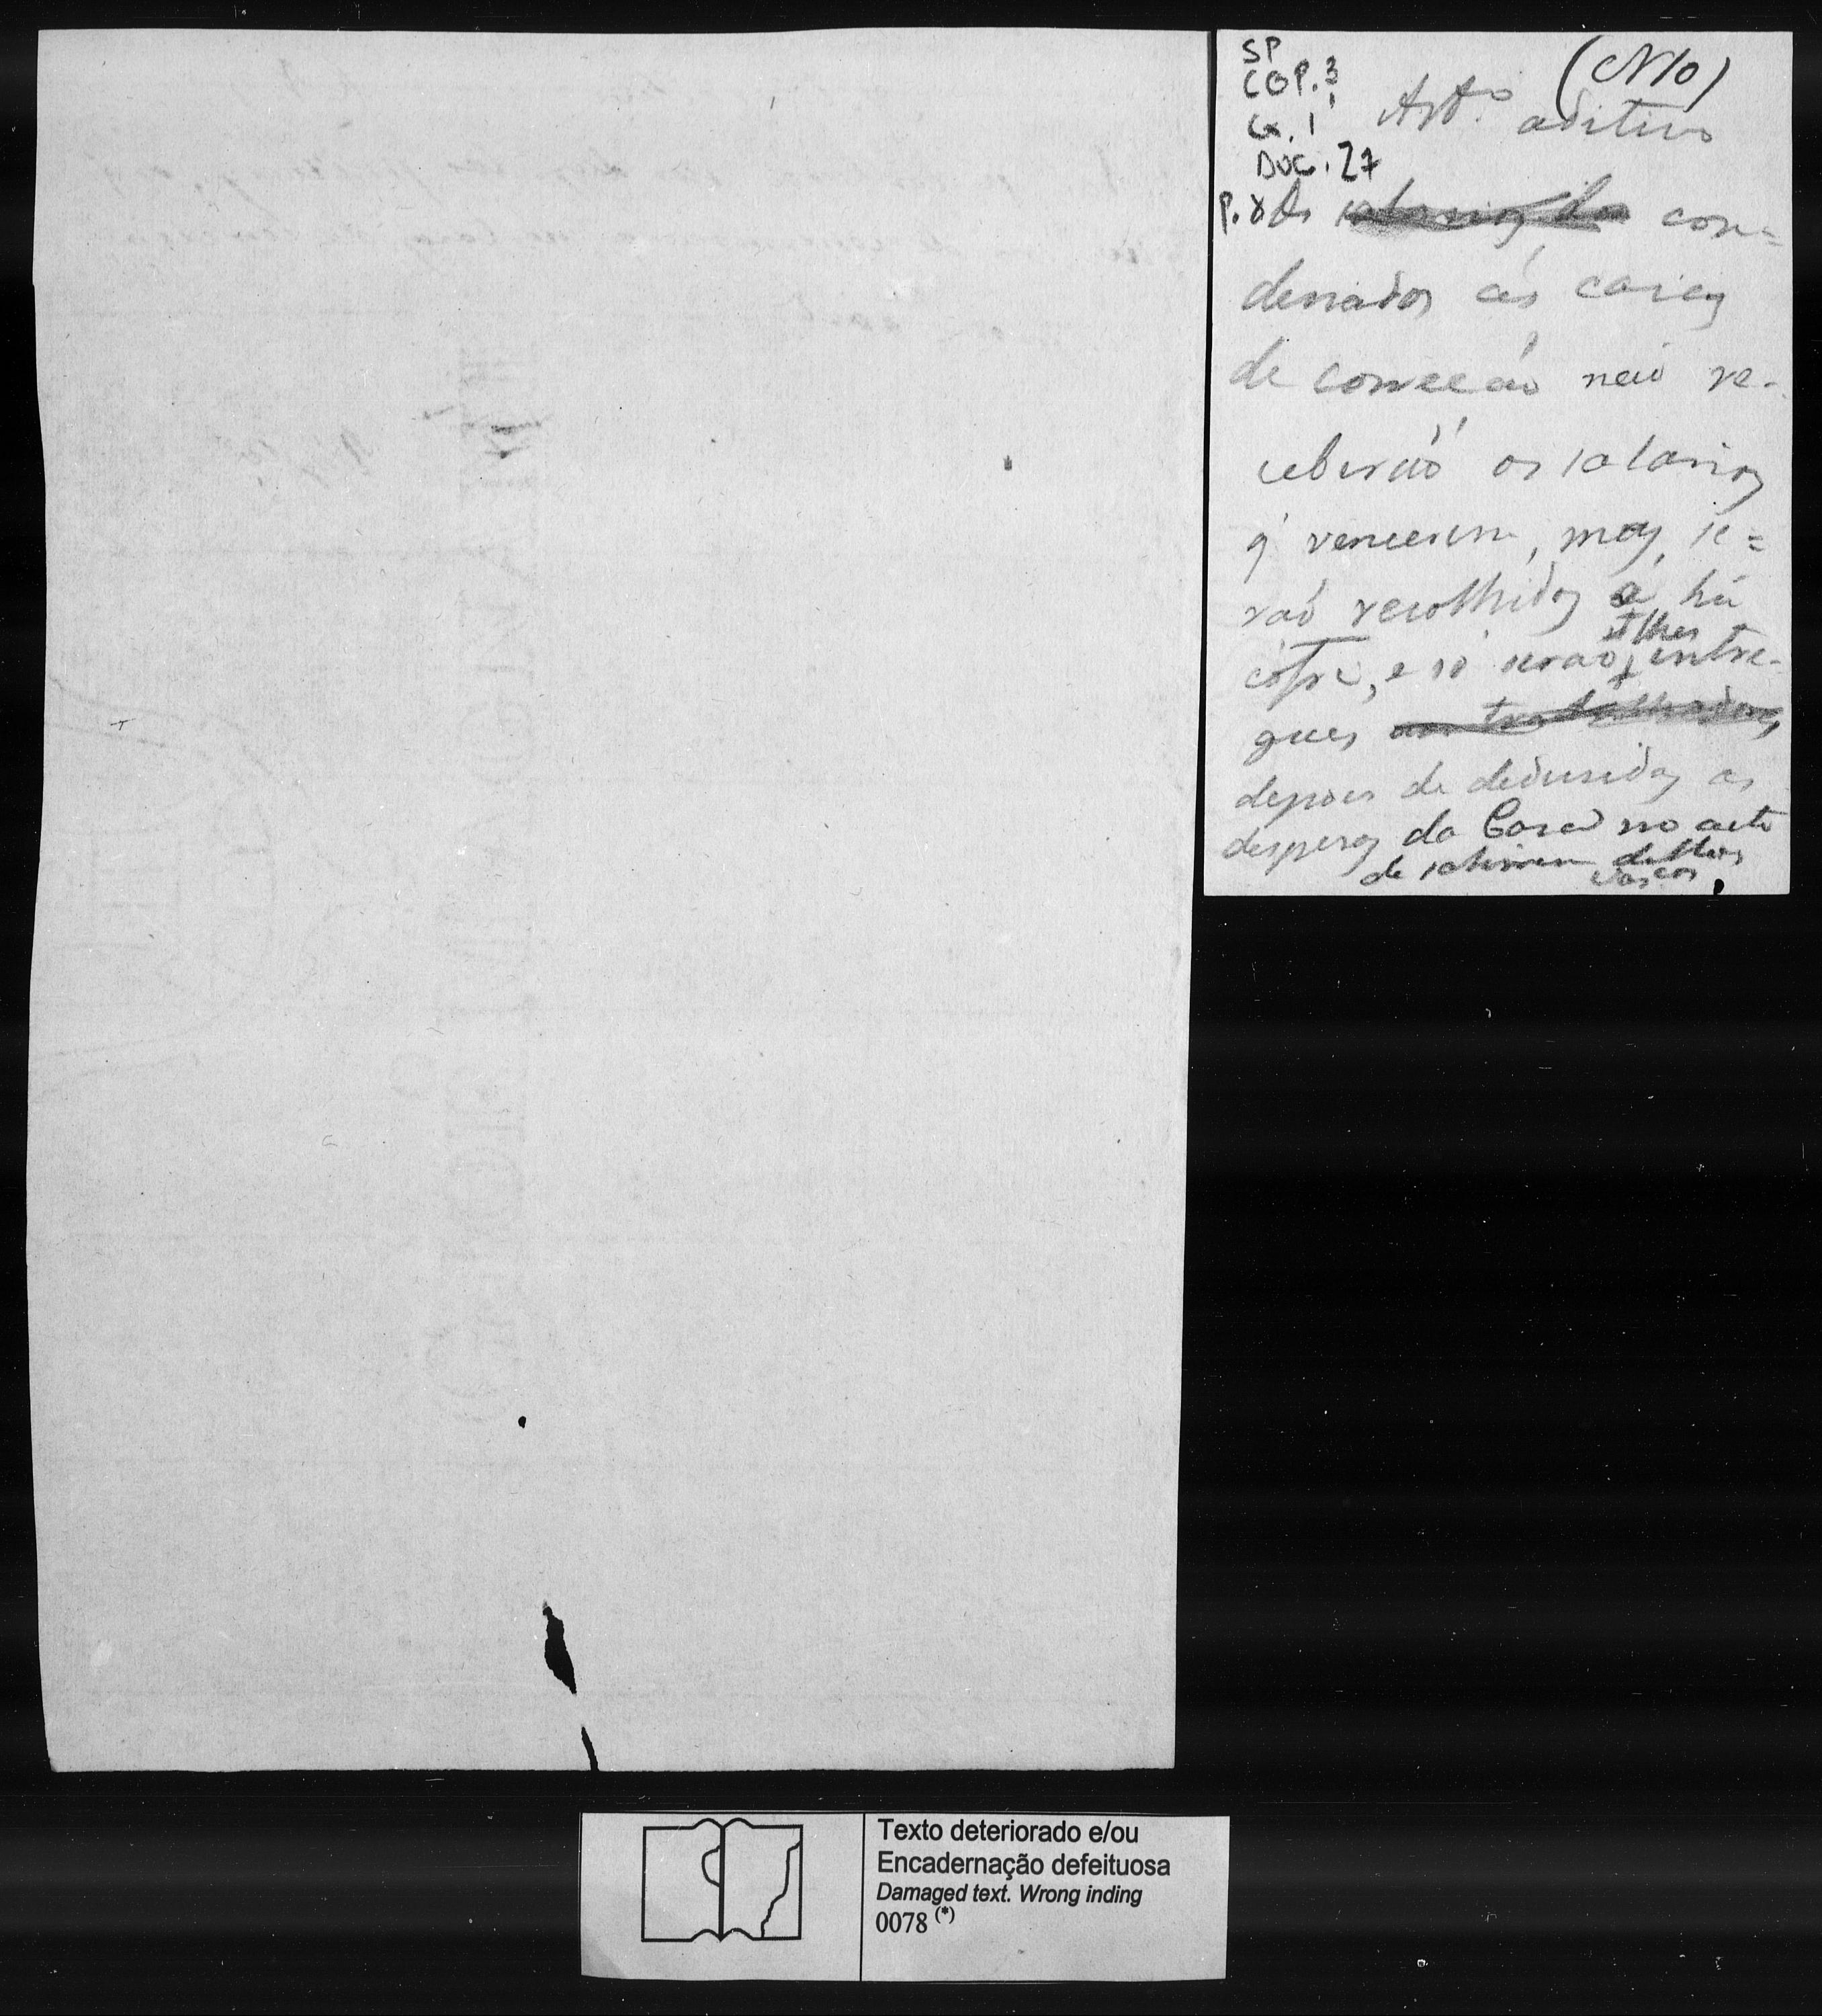 SP
COP. 3
Cx. 1
DOC. 27
P. 8
(Nº 10)
Artº aditivo
Os salarios dos con=
denados ás casas
de correcaó naó re-
ceberaó os salarios
q' vencerem, mas, se=
raó recolhidos a hú
cofre, e só seraó entre-
gues aos trabalhadores
depois de dedusidas as
despesas da Casa no acto
de sahirem
Texto deteriorado e/ou
Encadernação defeituosa
Damaged text. Wrong inding
0078 (*)